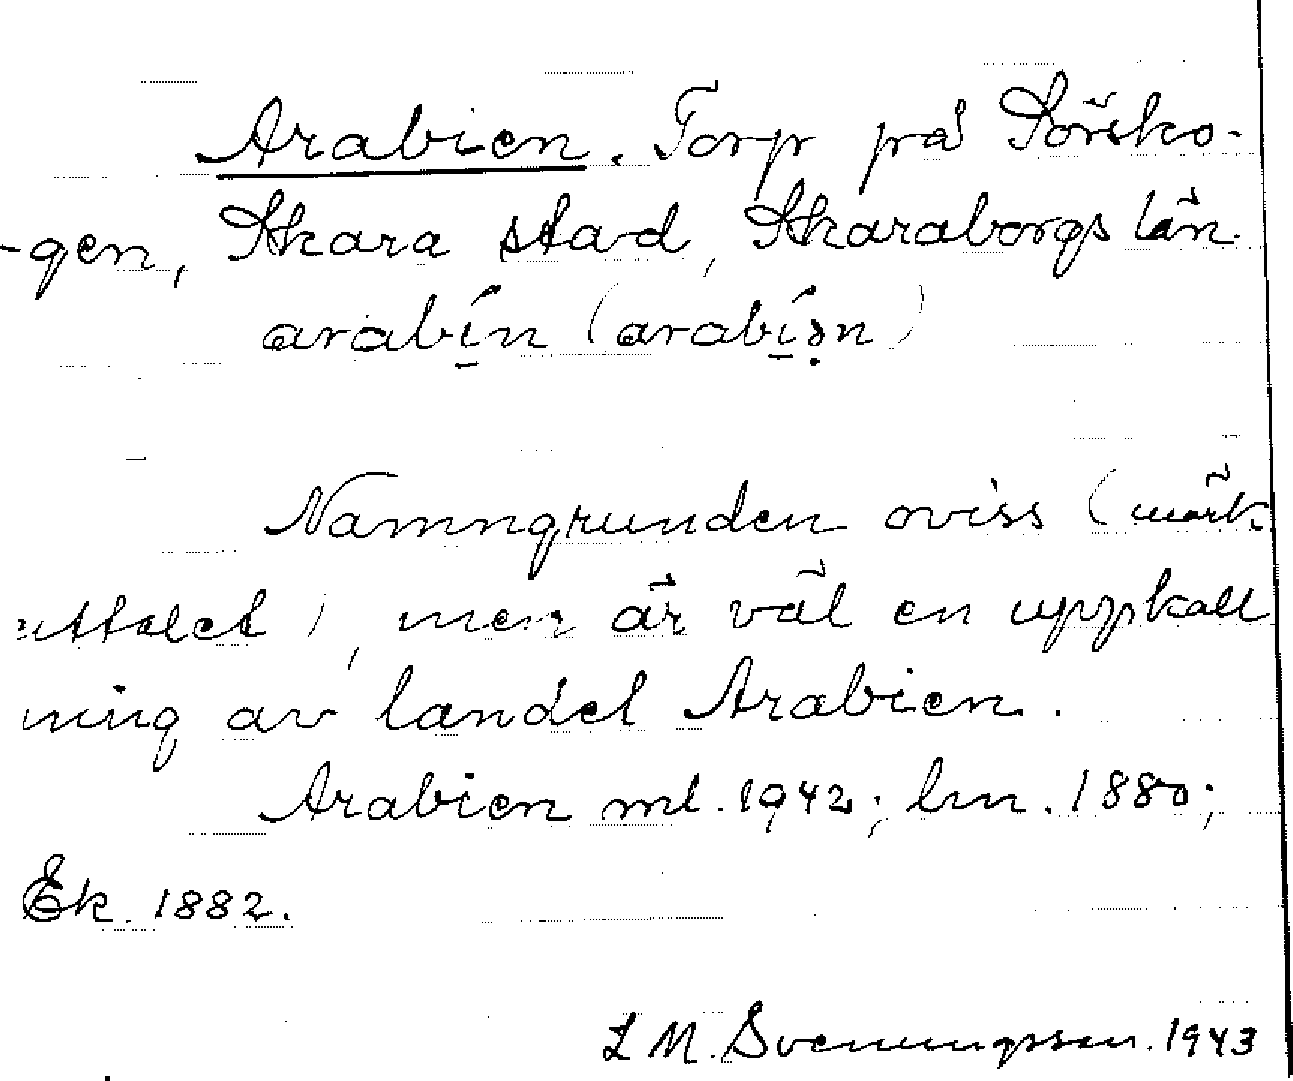 Arabien. Torp på Sörsko-
-gen, Skara stad, Skaraborgs län.
arabín (arabíən)
Namngrunden oviss (märk
uttalet), men är väl en uppkall
ning av landet Arabien.
Arabien ml. 1942; lm. 1880;
Ek. 1882.
L M. Svenungsson. 1943